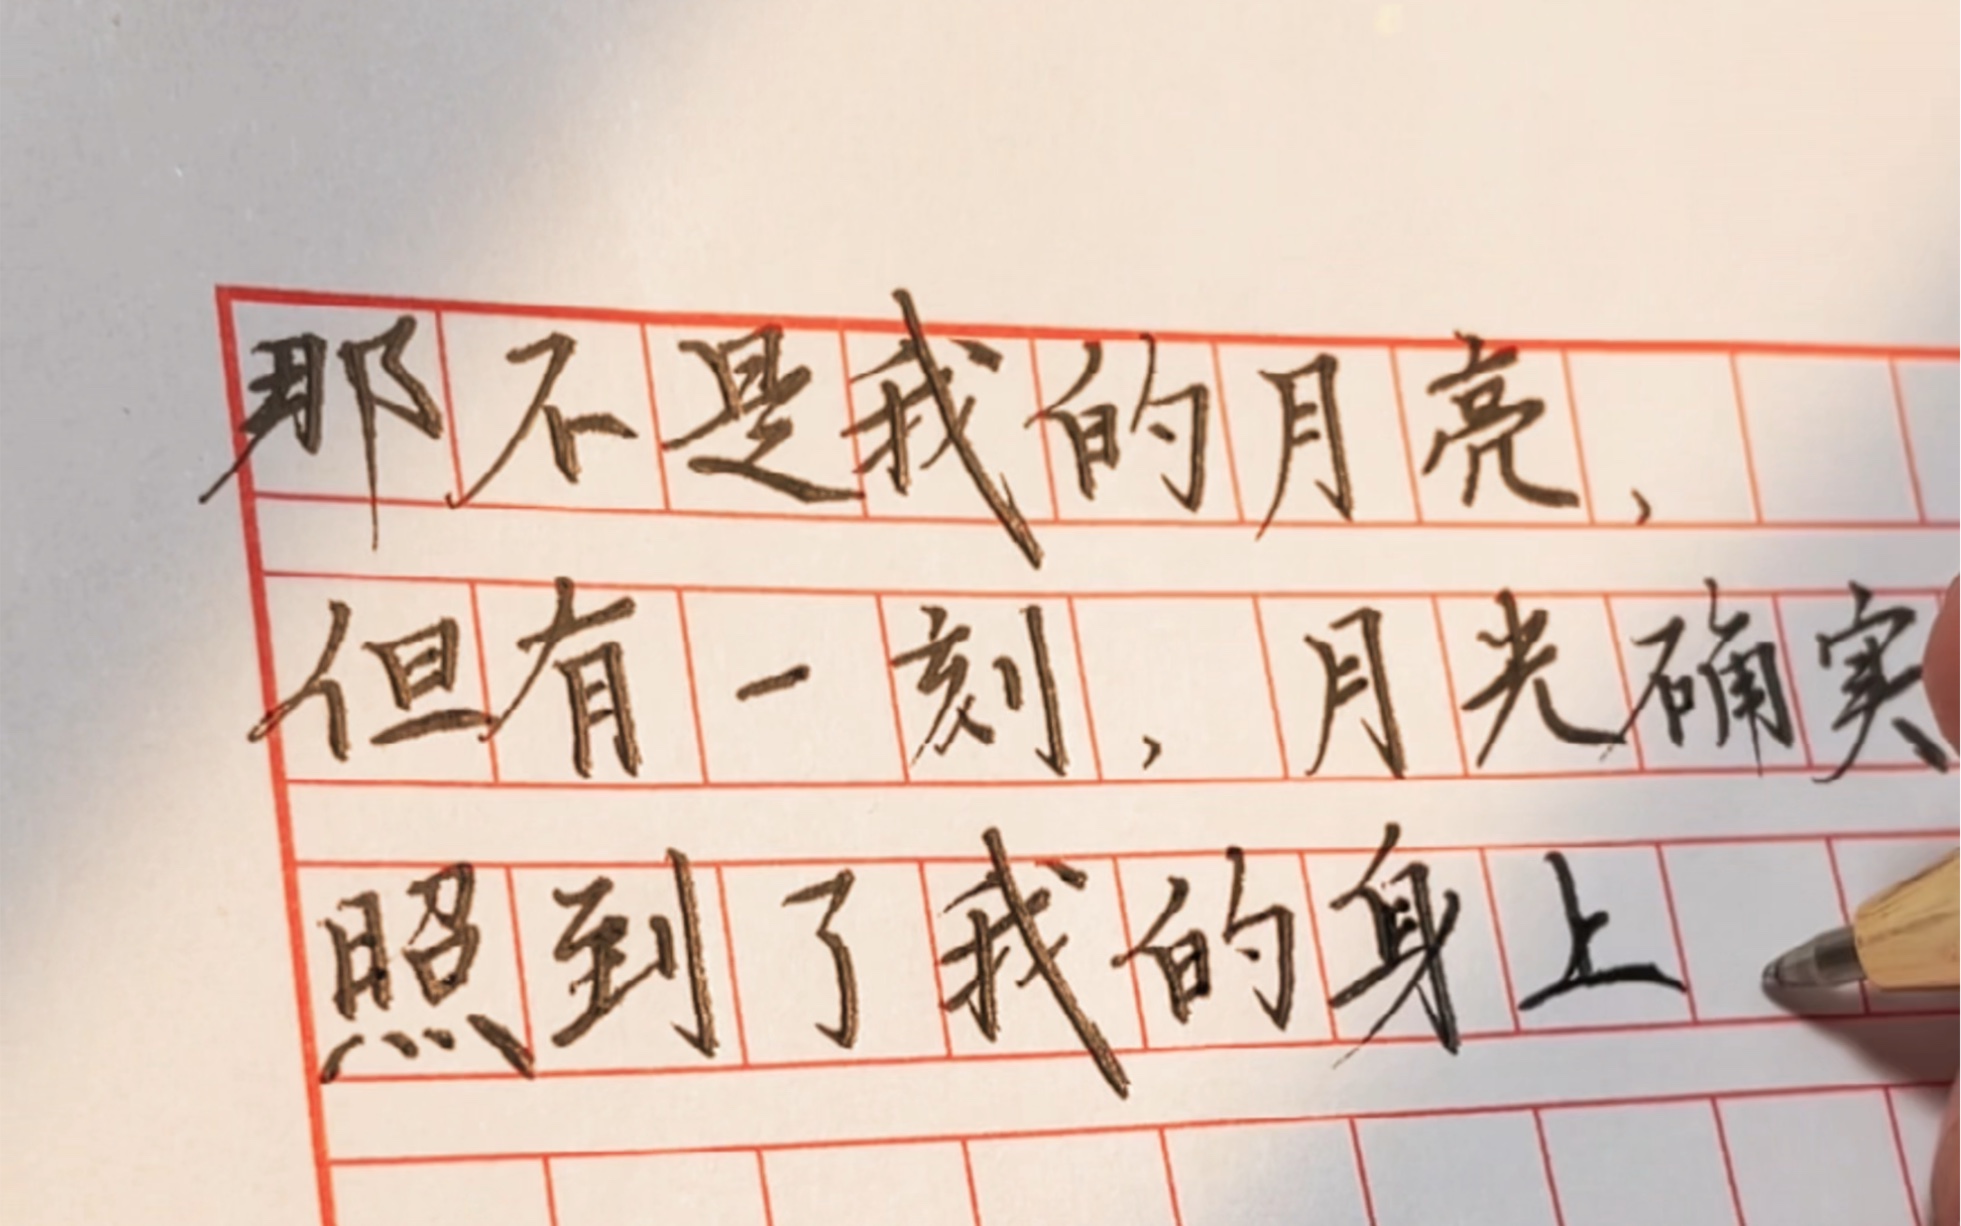 那不是我的月亮，
但有一刻，月光确实
照到了我的身上